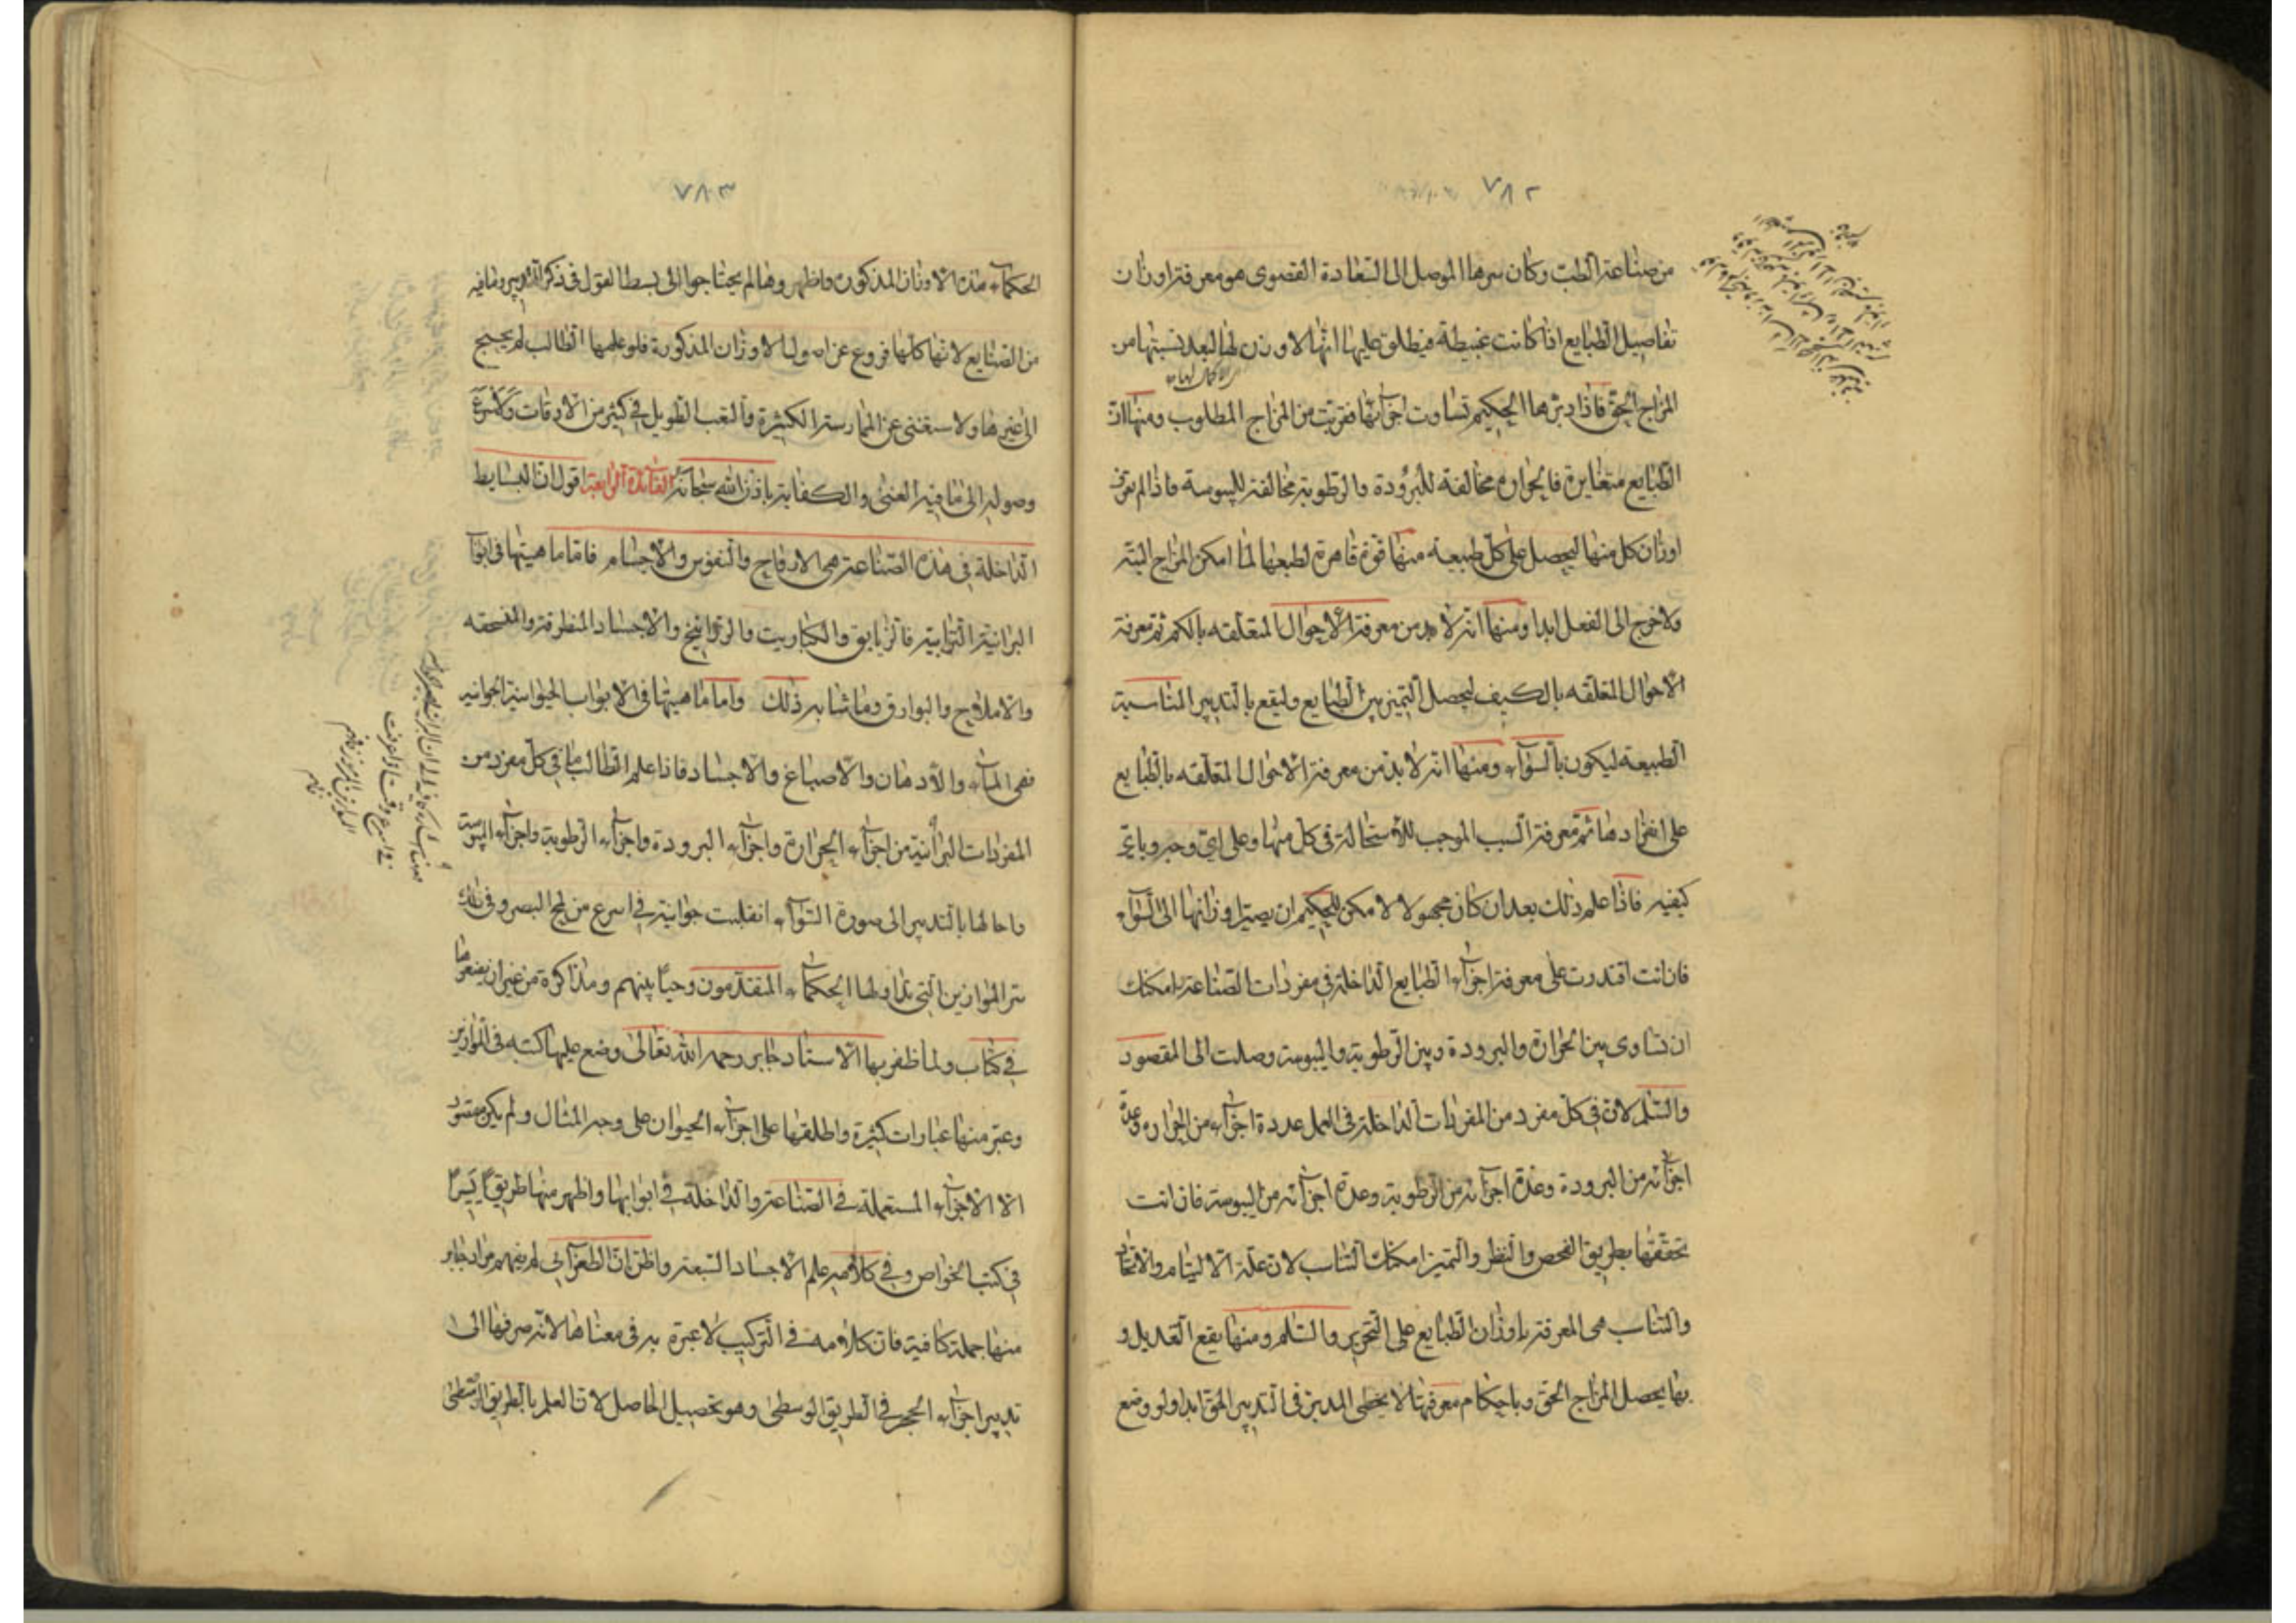 ٧٨٢
من صناعة الطب وكان سرها الموصل الى السعادة القصوى هو معرفة اوزان
تفاصيل الطبايع اذا كانت غبيطة فيطلق عليها انها لا وزن لها لبعد نسبتها من
المزاج الحق فاذا دبرها الحكيم تساوت اجزائها فقربت من المزاج المطلوب ومنها ان
الطبايع متغايرة فالحرارة مخالفة للبرودة والرطوبة مخالفة لليبوسة فاذا لم يعرف
اوزان كل منها ليحصل على كل طبيعة منها قوة قاهرة لطبعها لما امكن المزاج البتة
ولاخرج الى الفعل ابدا ومنها انه لا بد من معرفة الاحوال المتعلقه بالكم ثم معرفة
الاحوال المتعلقه بالكيف ليحصل التميز بين الطبايع وليقع بالتدبير المناسبة
الطبيعه ليكون بالسواء ومنها انه لا بد من معرفة الاحوال المتعلقه بالطبايع
على انفرادها ثم معرفة السبب الموجب للاستحالة في كل منها وعلى اي وجه وباي
كيفيه فاذا علم ذلك بعد ان كان مجهولا لا مكن للحكيم ان يصير اوزانها الى السواء
فان انت اقتدرت على معرفة اجزاء الطبايع الداخلة في مفردات الصناعة امكنك
ان تساوى بين الحرارة والبرودة وبين الرطوبة واليبوسة وصلت الى المقصود
والسلم لان في كل مفرد من المفردات الداخلة في العمل عددة اجزاء من الحرارة وعدة
اجزائه من البرودة وعدة اجزائه من الرطوبة وعدة اجزائه من اليبوسة فان انت
تحققتها بطريق الفحص والنظر والتميز امكنك التناسب لان علة الاليتام والاتحاد
والتناسب هى المعرفة باوزان الطبايع على التحرير والسلم ومنها يقع التعديل و
بها يحصل المزاج الحق وباحكام معرفتها لا يخطى المدبر في التدبير الحق ابدا ولو وضع
٧٨٣
الحكماء هذه الاوزان المذكورة واظهروها لم يحتاجوا الى بسط القول في ذكر التدبير وما فيه
من الصنايع لانها كلها فروع عن اه ولها الاوزان المذكورة فلو علمها الطالب لم يحتج
الى غيرها ولاستغنى عن الممارسة الكثيرة والتعب الطويل في كثير من الاوقات ولاسرع
وصوله الى ما فيه الغنى والكفاية باذن الله سبحانه الفائدة الرابعة اقول ان البسايط
الداخلة في هذه الصناعة هى الارواح والنفوس والاجسام فاما ماهيتها في ابواب
البرانية الترابية فالزيابق والكباريت والزرانيخ والاجساد المنطرقة والمنسحقه
والاملاح والبوارق وما شابه ذلك واما ماهيتها في الابواب الحيوانية الجوانيه
فهى المياه والادهان والاصباغ والاجساد فاذا علم الطالب ما في كل مفرد من
المفردات البرانية من اجزاء الحرارة واجزاء البرودة واجزاء الرطوبة واجزاء اليبوسة
واحالها بالتدبير الى صورة السواء انقلبت جوانية في اسرع من لمح البصر وفى ذلك
سر الموازين التى تداولها الحكماء المتقدمون وحيا بينهم ومذاكرة من غير ان يضعوها
في كتاب ولما ظفر بها الاستاد جابر رحمه الله تعالى وضع عليها كتبه في الموازين
وعبر منها عبارات كثيرة واطلقها على اجزاء الحيوان على وجه المثال ولم يكن مقصود
الا الاجزاء المستعملة في الصناعة والداخلة في ابوابها واظهر منها طريقا يسيرا
في كتب الخواص وفي كلامه علم الاجساد السبعة واظن ان الطغرائي لم يفهم مراد جابر
منها جملة كافية فان كلامه في التركيب لا عبرة به في معناها لانه صرفها الى
تدبير اجزاء الحجر في الطريق الوسطى وهو تحصيل الحاصل لان العلم بالطريق الوسطى